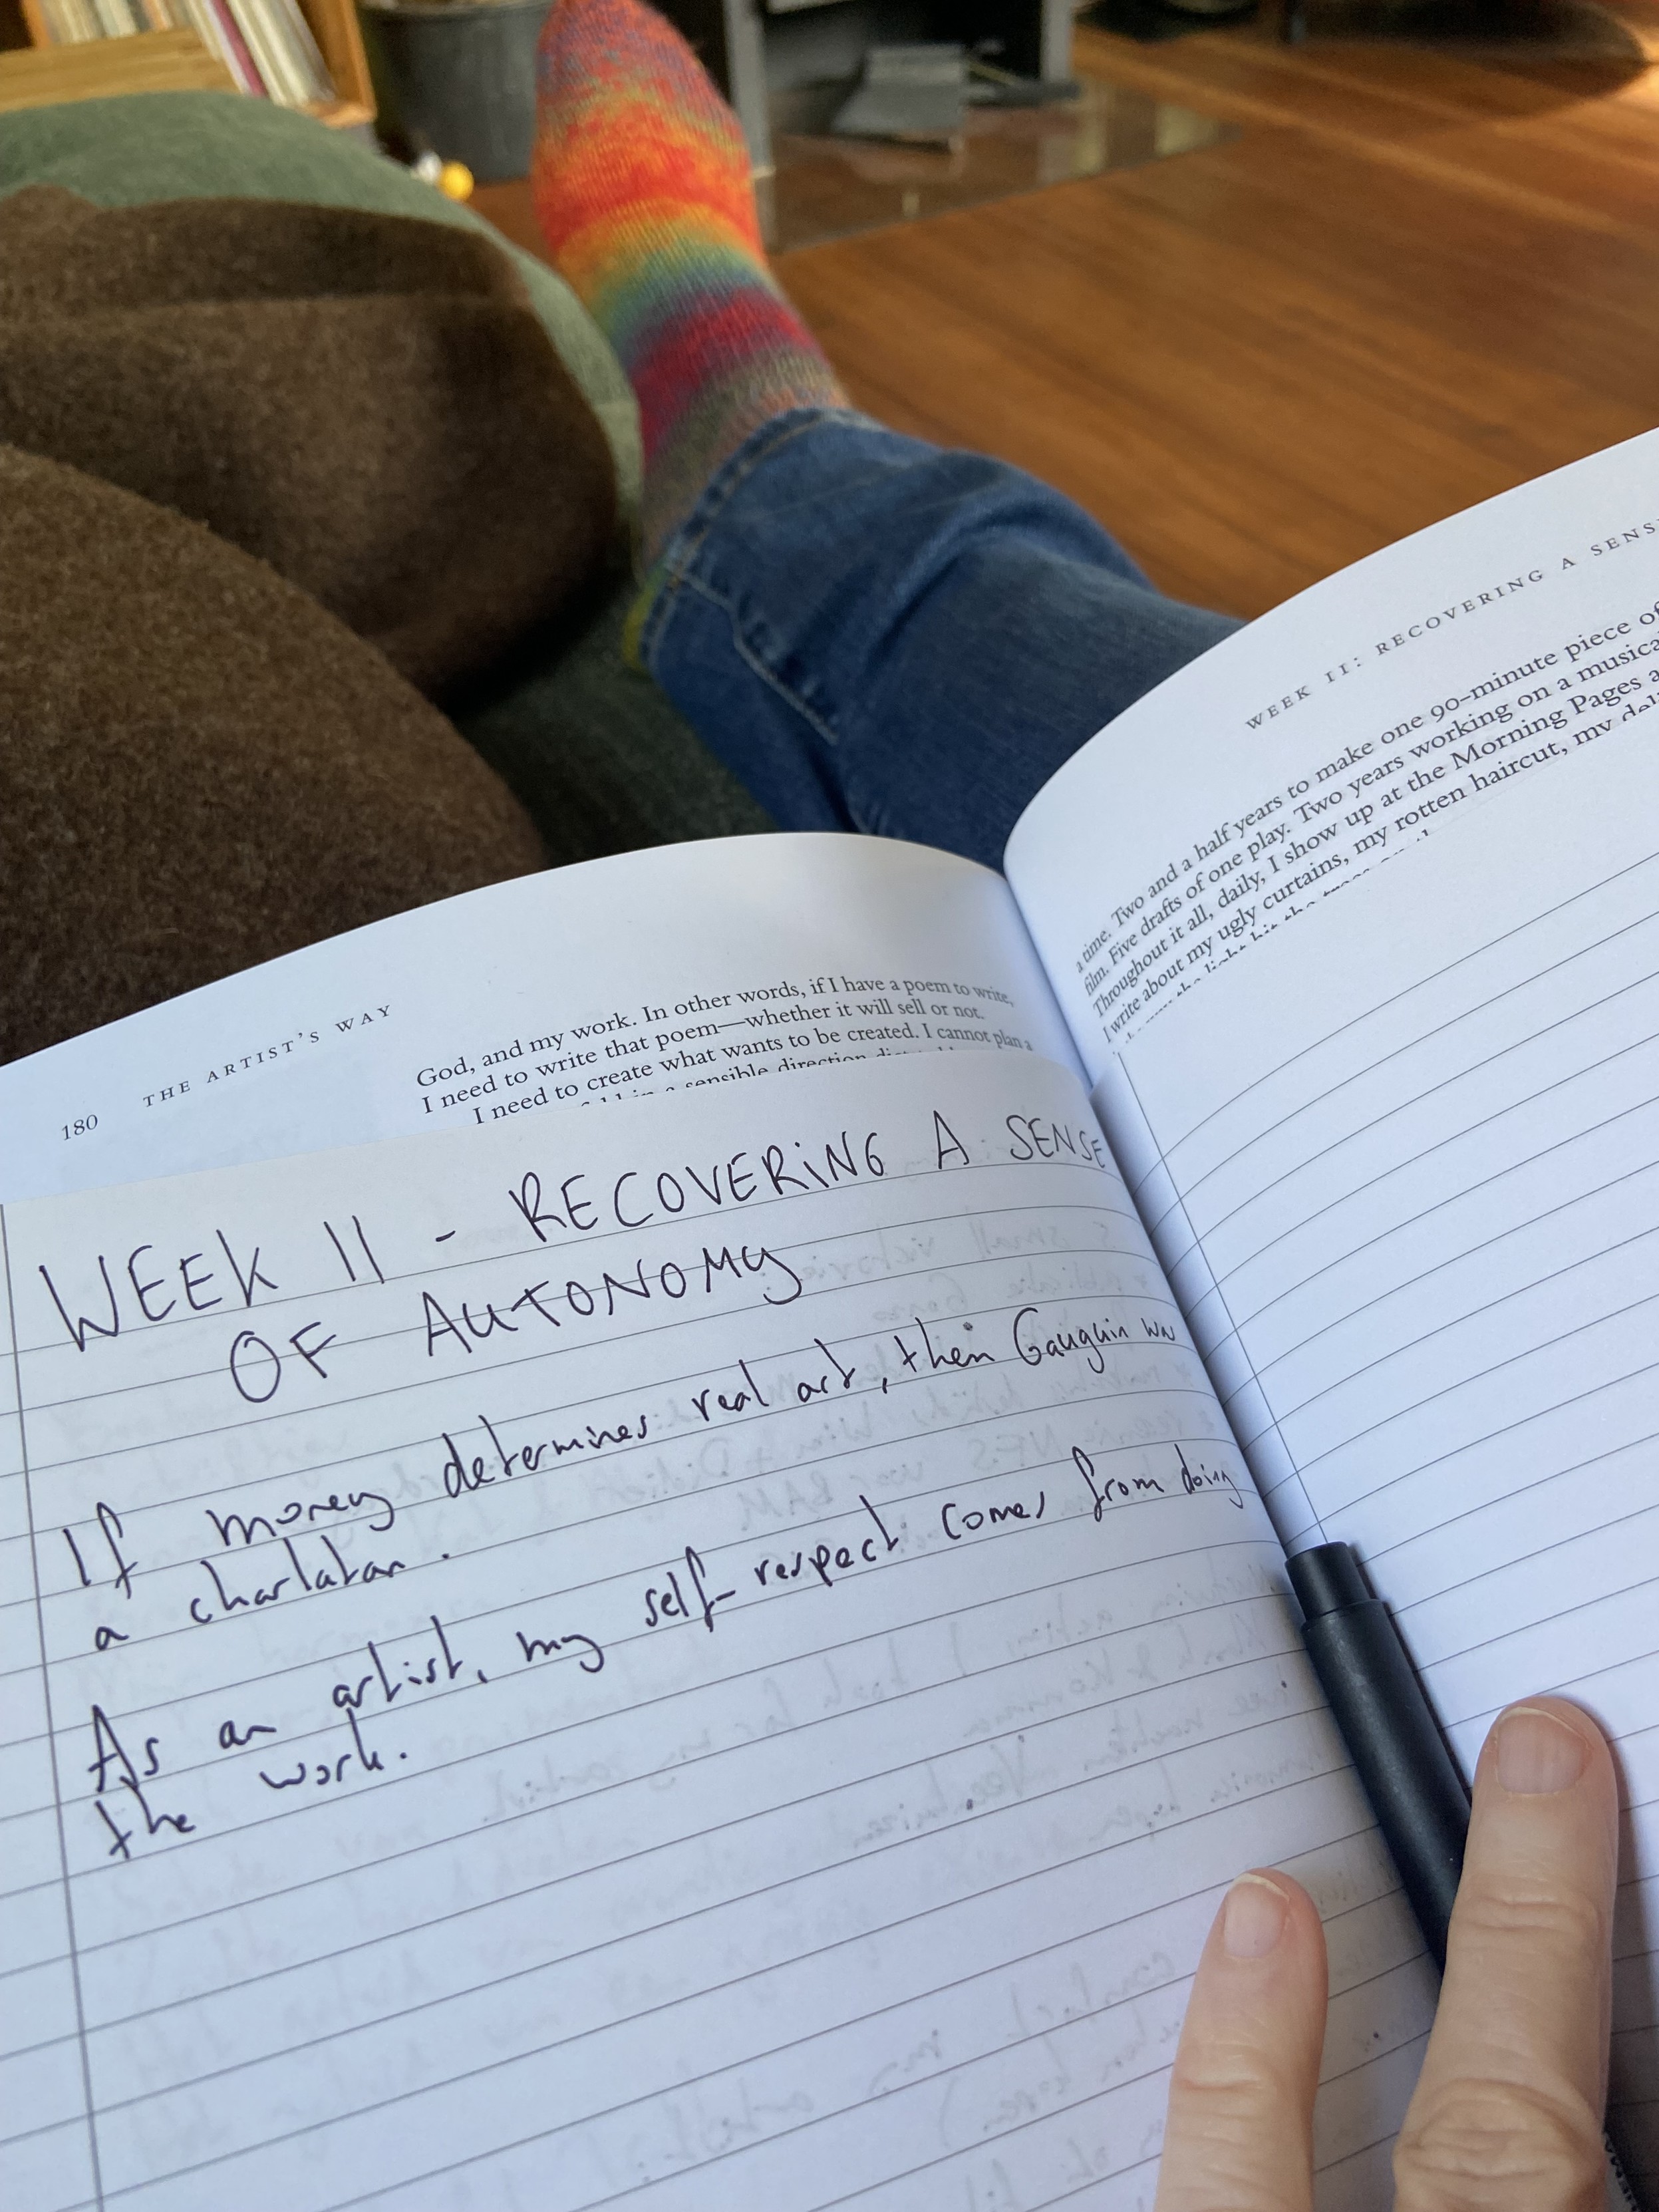 180 THE ARTIST'S WAY
God, and my work. In other words, if I have a poem to write,
I need to write that poem—whether it will sell or not.
I need to create what wants to be created. I cannot plan a
in a sensible direction
WEEK 11 - RECOVERING A SENSE
OF AUTONOMY
If money determines real art, then Gauguin was
a charlatan.
As an artist, my self-respect comes from doing
the work.
WEEK 11: RECOVERING A SENS
a time. Two and a half years to make one 90-minute piece of
film. Five drafts of one play. Two years working on a musica
Throughout it all, daily, I show up at the Morning Pages a
I write about my ugly curtains, my rotten haircut, my